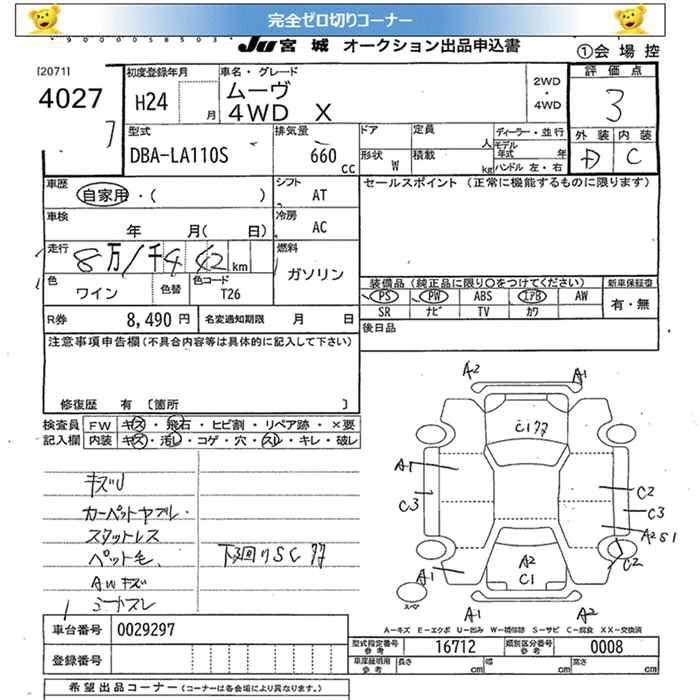 完全ゼロ切りコーナー
JU 宮城 オークション出品申込書
①会場控
[2071]
4027
初度登録年月
H24 月
車名・グレード
ムーヴ
4WD X
2WD・4WD
評価点
3
外装 内装
D C
型式
DBA-LA110S
排気量
660 CC
ドア 定員 人
形状 W 積載 kg
ディーラー・並行
モデル年式 年
ハンドル 左・右
車歴
自家用・( )
シフト
AT
セールスポイント (正常に機能するものに限ります)
車検
年 月( 日)
冷房
AC
走行
8万/千442km
燃料
ガソリン
色
ワイン
色替
色コード
T26
装備品(純正品に限り○をつけてください)
新車保証書
PS PW ABS エアB AW
SR ナビ TV カワ
有・無
R券 8,490 円
名変通知期限 月 日
後日品
注意事項申告欄(不具合内容等は具体的に記入して下さい)
修復歴 有 〔箇所 〕
検査員記入欄
FW キズ・飛石・ヒビ割・リペア跡・×要
内装 キズ・汚レ・コゲ・穴・スレ・キレ・破レ
キズU
カーペットヤブレ・
スタットレス
ペット毛、
下回りSC
AWキズ
シートスレ
A2 A1
C1
A1
C3
C2
C3
A2S1
C2
A2
C1
A1
スペア
A1 A2
A-キズ E-エクボ U-凹み W-補修跡 S-サビ C-腐食 XX-交換済
車台番号 0029297
型式指定番号 参考 16712
類別区分番号 参考 0008
登録番号
車庫証明用 参考 長さ cm 幅 cm 高さ cm
希望出品コーナー (コーナーは各会場により異なります。)